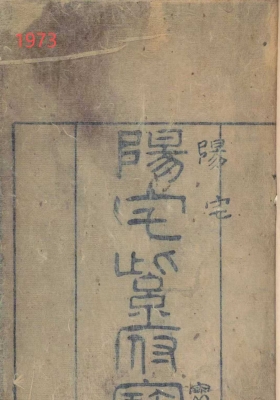 1973
陽宅
陽宅紫府寶